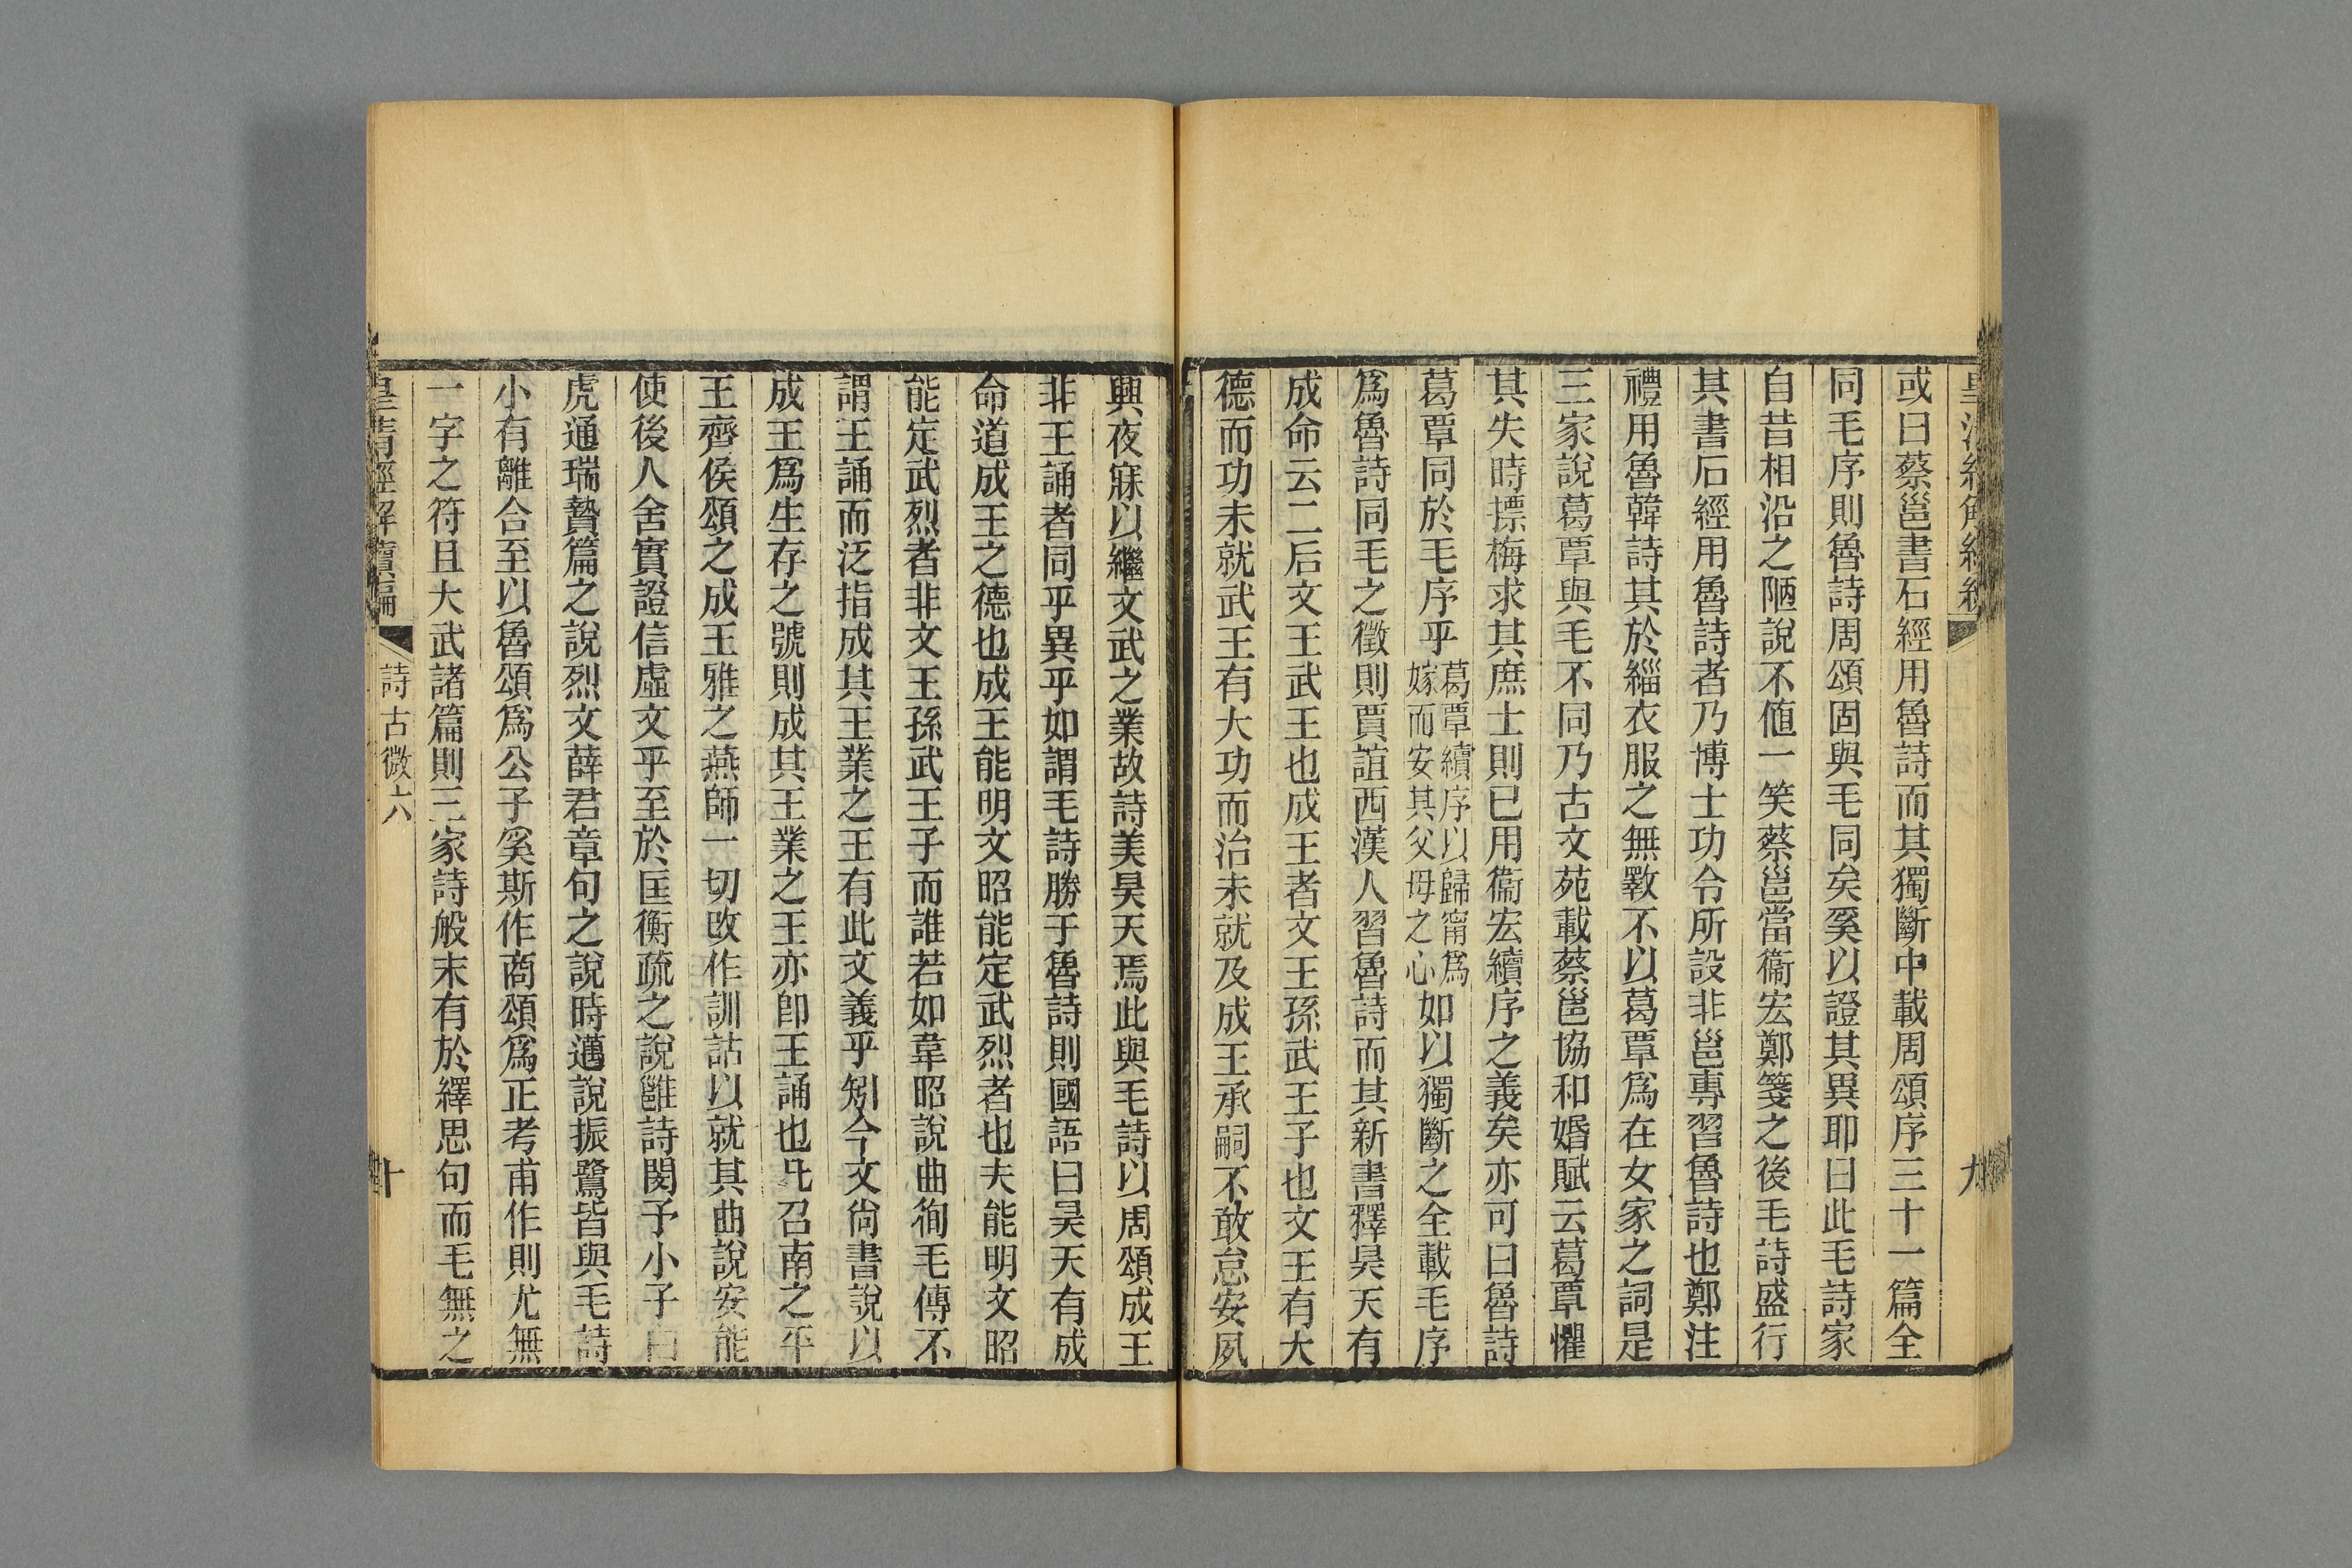 或曰蔡邕書石經用魯詩而其獨斷中載周頌序三十一篇全
同毛序則魯詩周頌固與毛同矣奚以證其異耶曰此毛詩家
自昔相沿之陋說不値一笑蔡邕當衞宏鄭箋之後毛詩盛行
其書石經用魯詩者乃博士功令所設非邕專習魯詩也鄭注
禮用魯韓詩其於緇衣服之無斁不以葛覃爲在女家之詞是
三家說葛覃與毛不同乃古文苑載蔡邕協和婚賦云葛覃懼
其失時摽梅求其庶士則已用衞宏續序之義矣亦可曰魯詩
葛覃同於毛序乎葛覃續序以歸甯爲嫁而安其父母之心如以獨斷之全載毛序
爲魯詩同毛之徵則賈誼西漢人習魯詩而其新書釋昊天有
成命云二后文王武王也成王者文王孫武王子也文王有大
德而功未就武王有大功而治未就及成王承嗣不敢怠安夙
興夜寐以繼文武之業故詩美昊天焉此與毛詩以周頌成王
非王誦者同乎異乎如謂毛詩勝于魯詩則國語曰昊天有成
命道成王之德也成王能明文昭能定武烈者也夫能明文昭
能定武烈者非文王孫武王子而誰若如韋昭說曲徇毛傳不
謂王誦而泛指成其王業之王有此文義乎矧今文尙書說以
成王爲生存之號則成其王業之王亦卽王誦也凡召南之平
王齊侯頌之成王雅之燕師一切改作訓詁以就其曲說安能
使後人舍實證信虛文乎至於匡衡疏之說雝詩閔予小子白
虎通瑞贄篇之說烈文薛君章句之說時邁說振鷺皆與毛詩
小有離合至以魯頌爲公子奚斯作商頌爲正考甫作則尤無
一字之符且大武諸篇則三家詩般末有於繹思句而毛無之
皇清經解續編
詩古微六
十